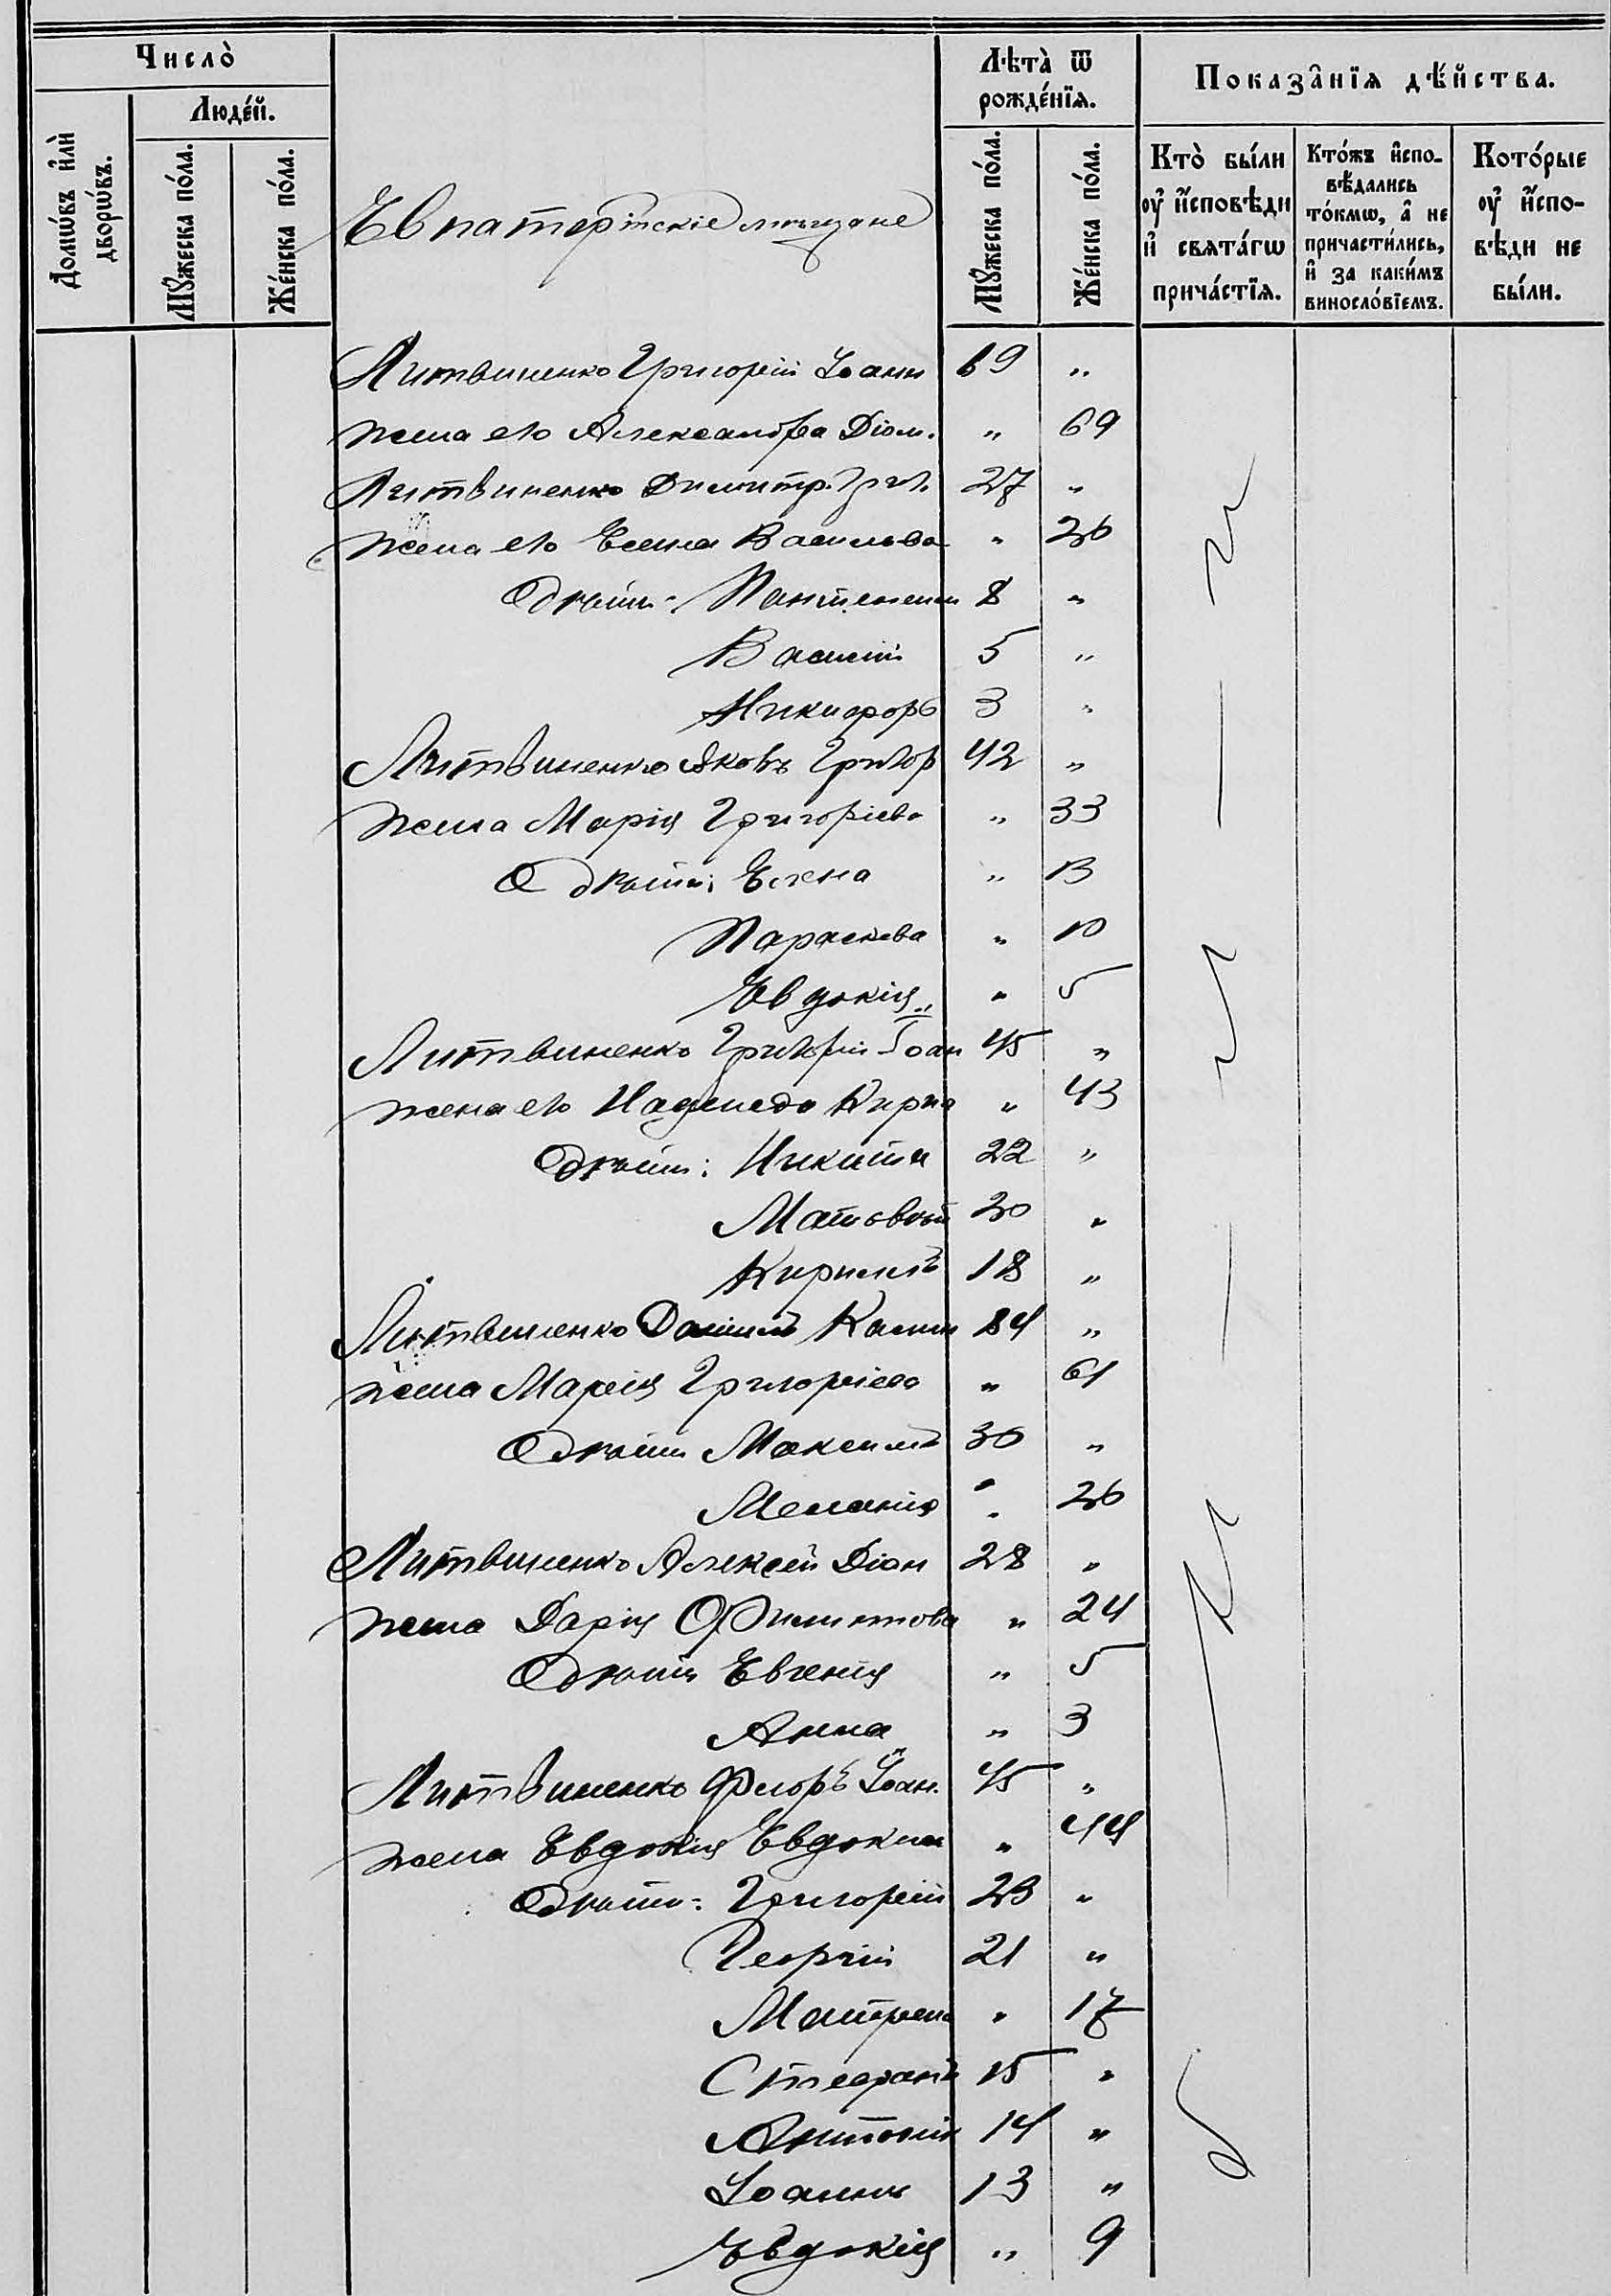 Число̀
Люде́й.
Домѡ́въ и҆лѝ дворѡ́въ.
Мꙋ́жеска по́ла.
Же́нска по́ла.
Евпаторійскіе мѣщане
Лѣта̀ ѿ рожде́нїѧ.
Мꙋ́жеска по́ла.
Же́нска по́ла.
Показа̂нїѧ дѣ́йства.
Кто̀ бы́ли ᲂу҆ и҆́сповѣди и҆ свѧта́гѡ прича́стїѧ.
Кто́жъ и҆спо-
вѣдались
то́кмѡ, а҆ не
причасти́лись,
и҆ за каки́мъ
виносло́вїемъ.
Кото́рые
ᲂу҆ и҆́спо-
вѣди не
бы́ли.
Литвиненко Григорій Іоанн 69 "
жена его Александра Діом. " 69
Литвиненко Димитр. Григ. 27 "
жена его Елена Васильева " 26
О дѣти: Пантелеим 8 "
Василій 5 "
Никифоръ 3 "
Литвиненко Яковъ Григор 42 "
жена Марія Григоріева " 33
О дѣти: Елена " 13
Параскева " 10
Евдокія " 5
Литвиненко Григорій Іоан 45 "
жена его Надежда Кирил " 43
О дѣти: Никита 22 "
Матовѣй 20 "
Кириллъ 18 "
Литвиненко Даніилъ 84 "
жена Марія Григоріева " 61
О дѣти Максимъ 30 "
Меланія " 26
Литвиненко Алексѣй Діон 28 "
жена Дарія " 24
О дѣти Евгенія " 5
Анна " 3
Литвиненко Флоръ Іоан. 45 "
жена Евдокія Евдоким " 44
О дѣти: Григорій 23 "
Георгій 21 "
Матрена " 17
Стефанъ 15 "
Антоній 14 "
Іоаннъ 13 "
Евдокія " 9